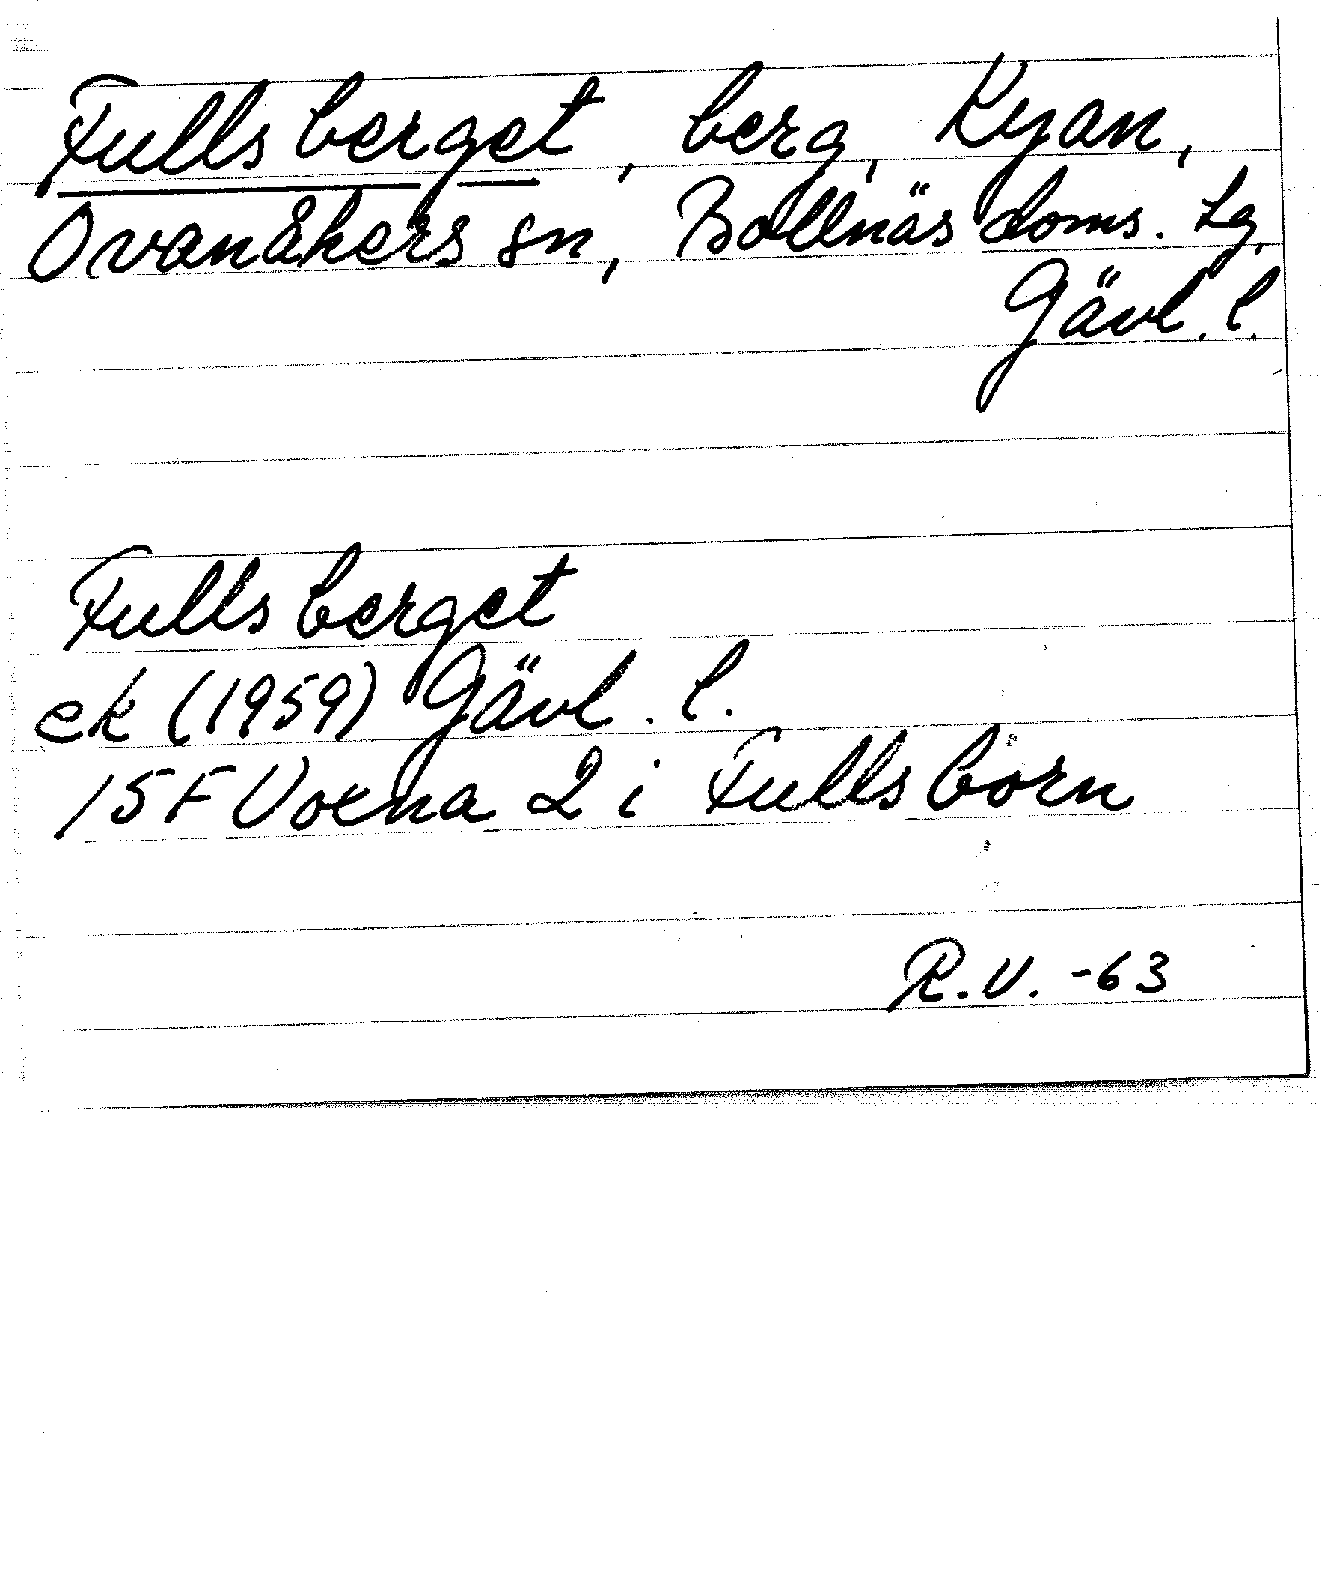 Fullsberget, berg, Kyan,
Ovanåkers sn, Bollnäs doms. lg,
Gävl. l.
Fullsberget
ek (1959) Gävl. l.
15F Voxna 2 i Fullsbörn
R.V. -63